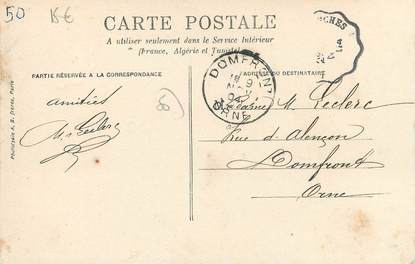 50 15€
CARTE POSTALE
A utiliser seulement dans le Service Intérieur
(France, Algérie et Tunisie)
PARTIE RÉSERVÉE A LA CORRESPONDANCE
ADRESSE DU DESTINATAIRE
amitiés
M. Leclerc
DOMFRONT
ORNE
Madame M. Leclerc
Rue d'Alençon
Domfront
Orne
Phototypie A. B. frères, Paris